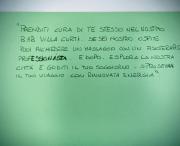 "PRENDITI CURA DI TE STESSO NEL NOSTRO
B&B VILLA CURTI. SE SEI NOSTRO OSPITE
PUOI RICHIEDERE UN MASSAGGIO CON UN FISIOTERAPISTA
PROFESSIONISTA E DOPO, ESPLORA LA NOSTRA
CITTÀ E GODITI IL TUO SOGGIORNO
IL TUO VIAGGIO CON RINNOVATA ENERGIA"